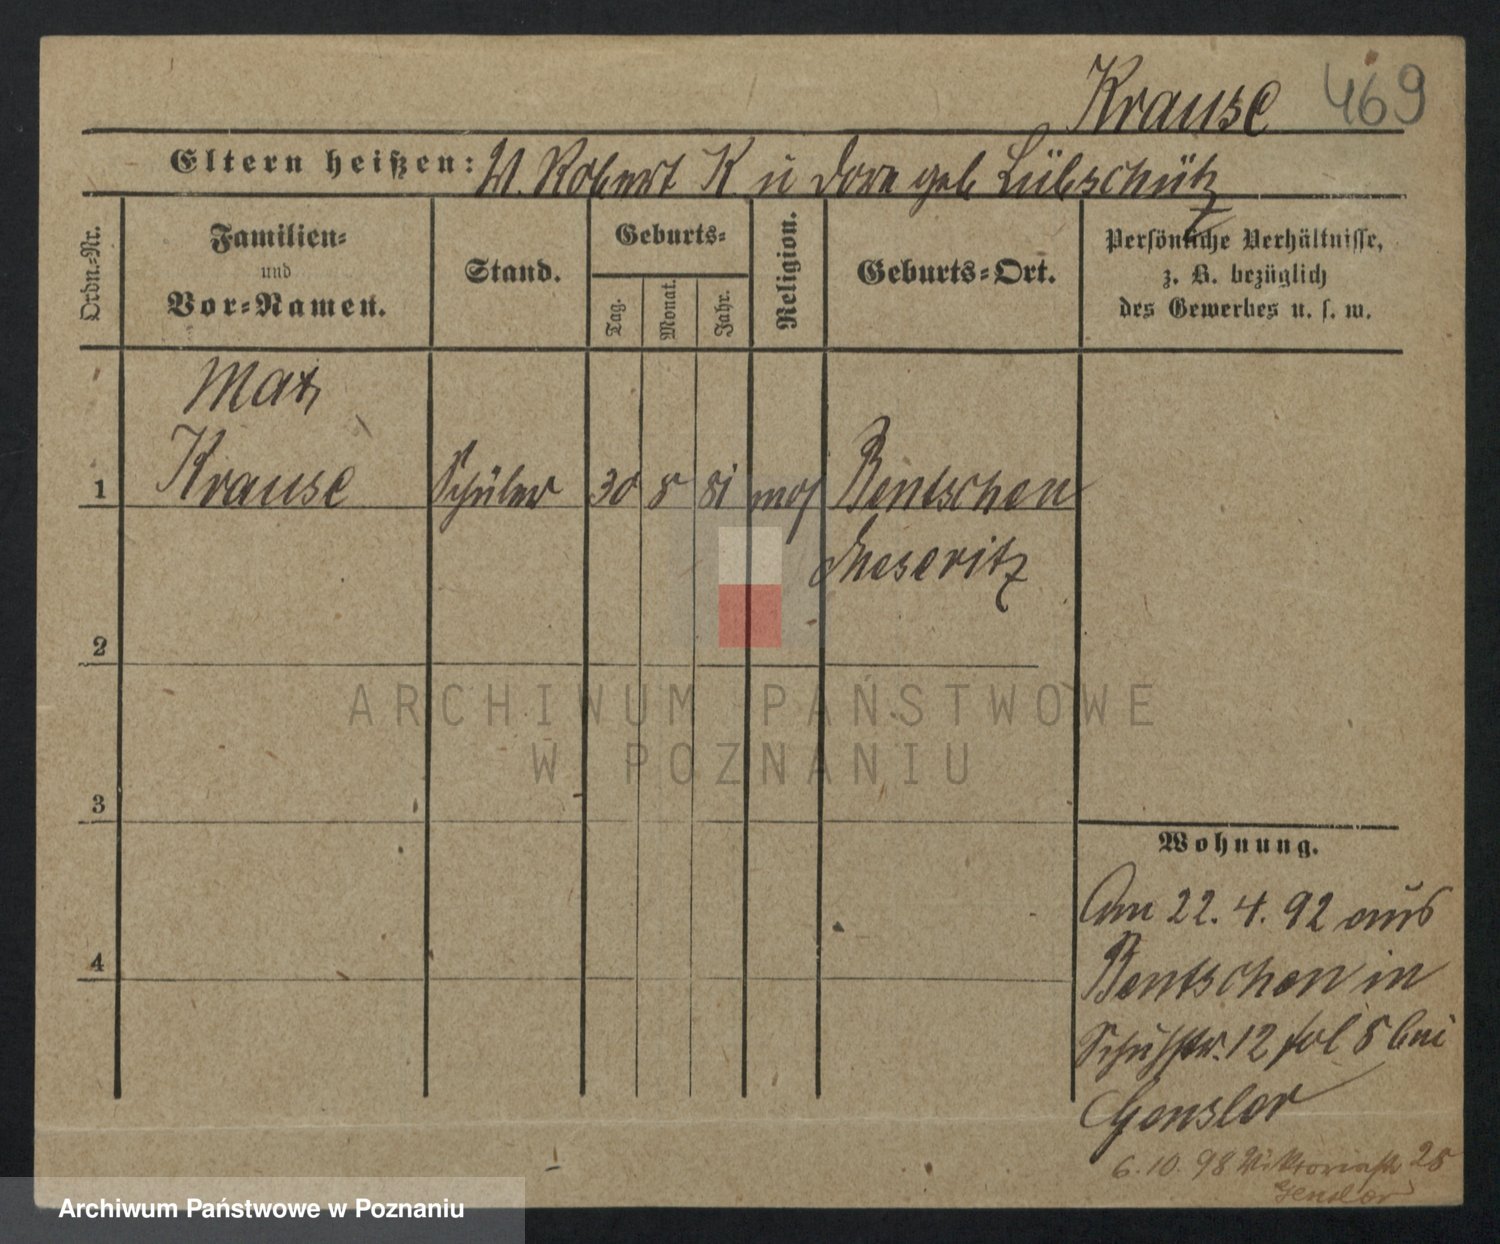 Krause 469
Eltern heißen: W. Robert K u Dora geb Lübschütz
Ordn.-Nr.
Familien-
und
Vor-Namen.
Stand.
Geburts-
Tag.
Monat.
Jahr.
Religion.
Geburts-Ort.
Persönliche Verhältnisse,
z. B. bezüglich
des Gewerbes u. s. w.
Max
Krause
1 Schüler 30 8 81 mos Bentschen
Meseritz
2
3
4
Wohnung.
Am 22.4.92 aus
Bentschen in
Schuhstr. 12 fol 8 bei
Gensler
6.10.98 Viktoriastr 25
Gensler
ARCHIWUM PAŃSTWOWE
W POZNANIU
Archiwum Państwowe w Poznaniu